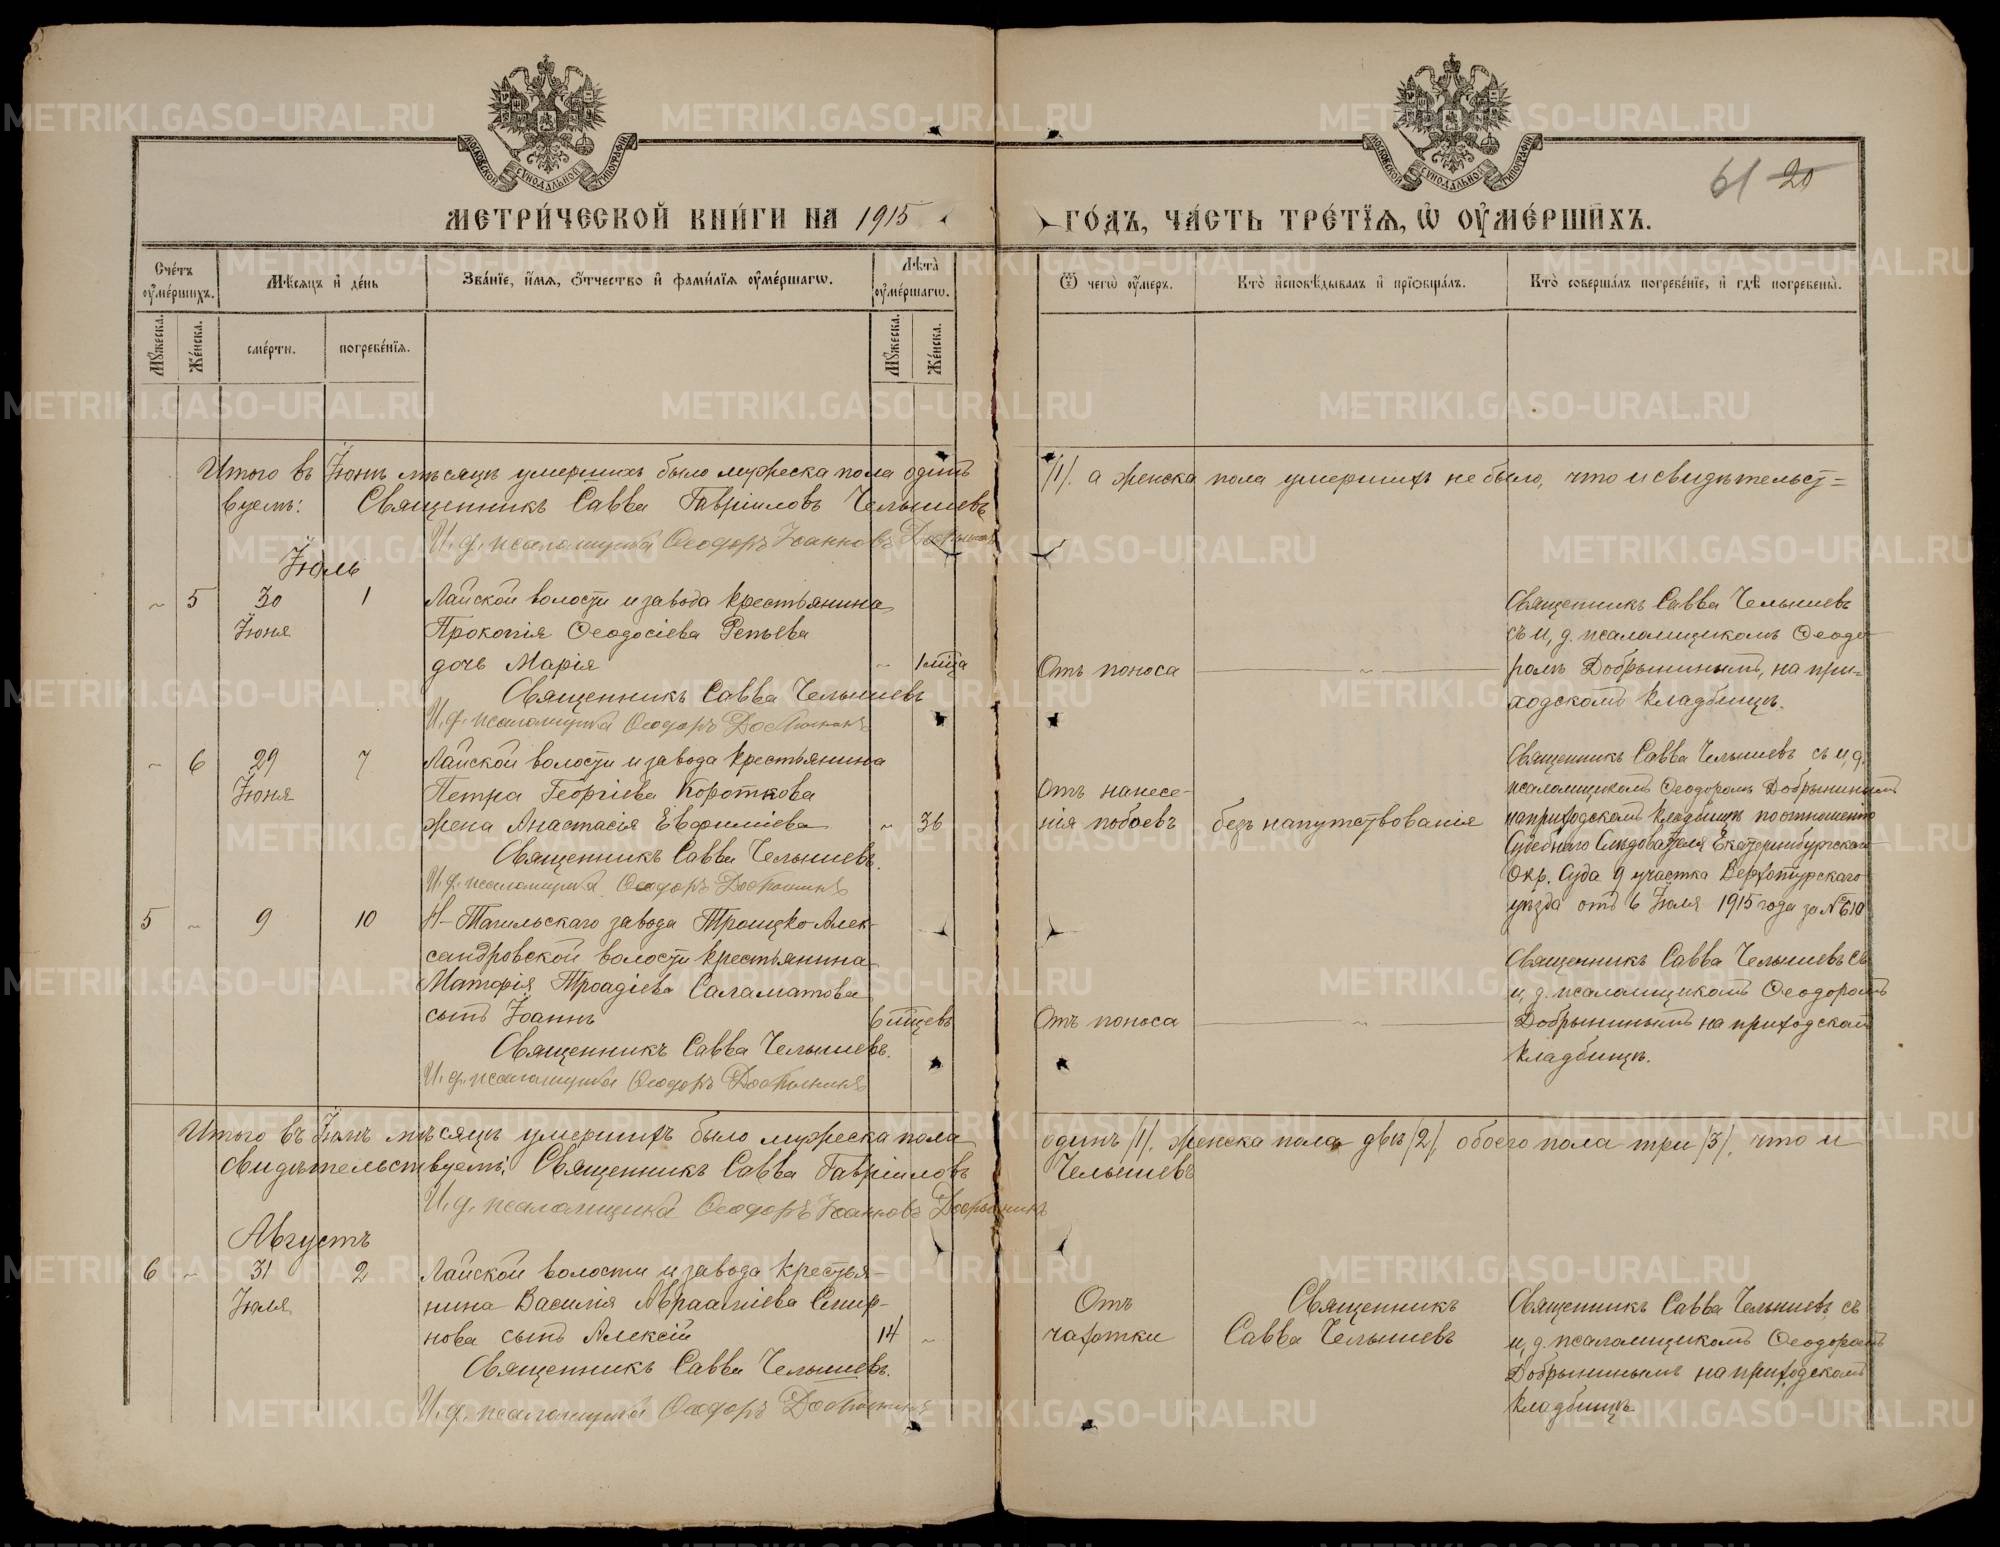 МОСКОВСКОЙ СѴНОДАЛЬНОЙ ТИПОГРАФІИ
МОСКОВСКОЙ СѴНОДАЛЬНОЙ ТИПОГРАФІИ
61 20
МЕТРИ́ЧЕСКОЙ КНИ́ГИ НА 1915
ГО́ДЪ, ЧА́СТЬ ТРЕ́ТЇѦ, Ѡ҆ ОУ҆МЕ́РШИХЪ.
Сче́тъ оу҆ме́ршихъ.
Мѣ́сѧцъ и҆ де́нь
Зва́нїе, и҆́мѧ, ѻ҆́тчество и҆ фами́лїѧ оу҆ме́ршагѡ.
Лѣта̀ оу҆ме́ршагѡ.
Ѿ чегѡ̀ оу҆́меръ.
Кто̀ и҆сповѣ́дывалъ и҆ прїѻбща́лъ.
Кто̀ соверша́лъ погребе́нїе, и҆ гдѣ̀ погребены̀.
Мꙋ́жеска.
Же́нска.
сме́рти.
погребе́нїѧ.
Мꙋ́жеска.
Же́нска.
Итого въ Іюнѣ мѣсяцѣ умершихъ было мужеска пола одинъ /1/. а женска пола умершихъ не было, что и свидѣтельст=
вуемъ: Священникъ Савва Гавріиловъ Челышевъ
И. д. псаломщика Ѳеодоръ Іоанновъ Добрынинъ
Іюль
~ 5 30 1 Лайской волости и завода крестьянина
Іюня Прокопія Ѳеодосіева Репьева
дочь Марія ~ 1 мѣс҃ца Отъ поноса ~
Священникъ Савва Челышевъ
И. д. псаломщика Ѳеодоръ Добрынинъ
Священникъ Савва Челышевъ
съ и. д. псаломщикомъ Ѳеодо-
ромъ Добрынинымъ, на при-
ходскомъ кладбищѣ.
~ 6 29 7 Лайской волости и завода крестьянина
Іюня Петра Георгіева Короткова
жена Анастасія Евфиміева ~ 36
Священникъ Савва Челышевъ.
И. д. псаломщика Ѳеодоръ Добрынинъ
Отъ нанесе-
нія побоевъ безъ напутствованія
Священникъ Савва Челышевъ съ и. д.
псаломщикомъ Ѳеодоромъ Добрынинымъ
на приходскомъ кладбищѣ по отношенію
Судебнаго Слѣдователя Екатеринбургскаго
Окр. Суда 9 участка Верхотурскаго
уѣзда отъ 6 Іюля 1915 года за № 610
5 ~ 9 10 Н-Тагильскаго завода Троицко-Алек-
сандровской волости крестьянина
Матфія Троадіева Саламатова
сынъ Іоаннъ 6 мѣс҃цевъ Отъ поноса ~
Священникъ Савва Челышевъ.
И. д. псаломщика Ѳеодоръ Добрынинъ
Священникъ Савва Челышевъ съ
и. д. псаломщикомъ Ѳеодоромъ
Добрынинымъ на приходскомъ
кладбищѣ.
Итого въ Іюлѣ мѣсяцѣ умершихъ было мужеска пола одинъ /1/, женска пола двѣ /2/, обоего пола три /3/, что и
свидѣтельствуемъ: Священникъ Савва Гавріиловъ Челышевъ
И. д. псаломщика Ѳеодоръ Іоанновъ Добрынинъ
Августъ
6 ~ 31 2 Лайской волости и завода крестья-
Іюля нина Василія Авраамiева Смир-
нова сынъ Алексій 14 ~
Священникъ Савва Челышевъ.
И. д. псаломщика Ѳеодоръ Добрынинъ
Отъ
чахотки
Священникъ
Савва Челышевъ
Священникъ Савва Челышевъ съ
и. д. псаломщикомъ Ѳеодоромъ
Добрынинымъ на приходскомъ
кладбищѣ
METRIKI.GASO-URAL.RU